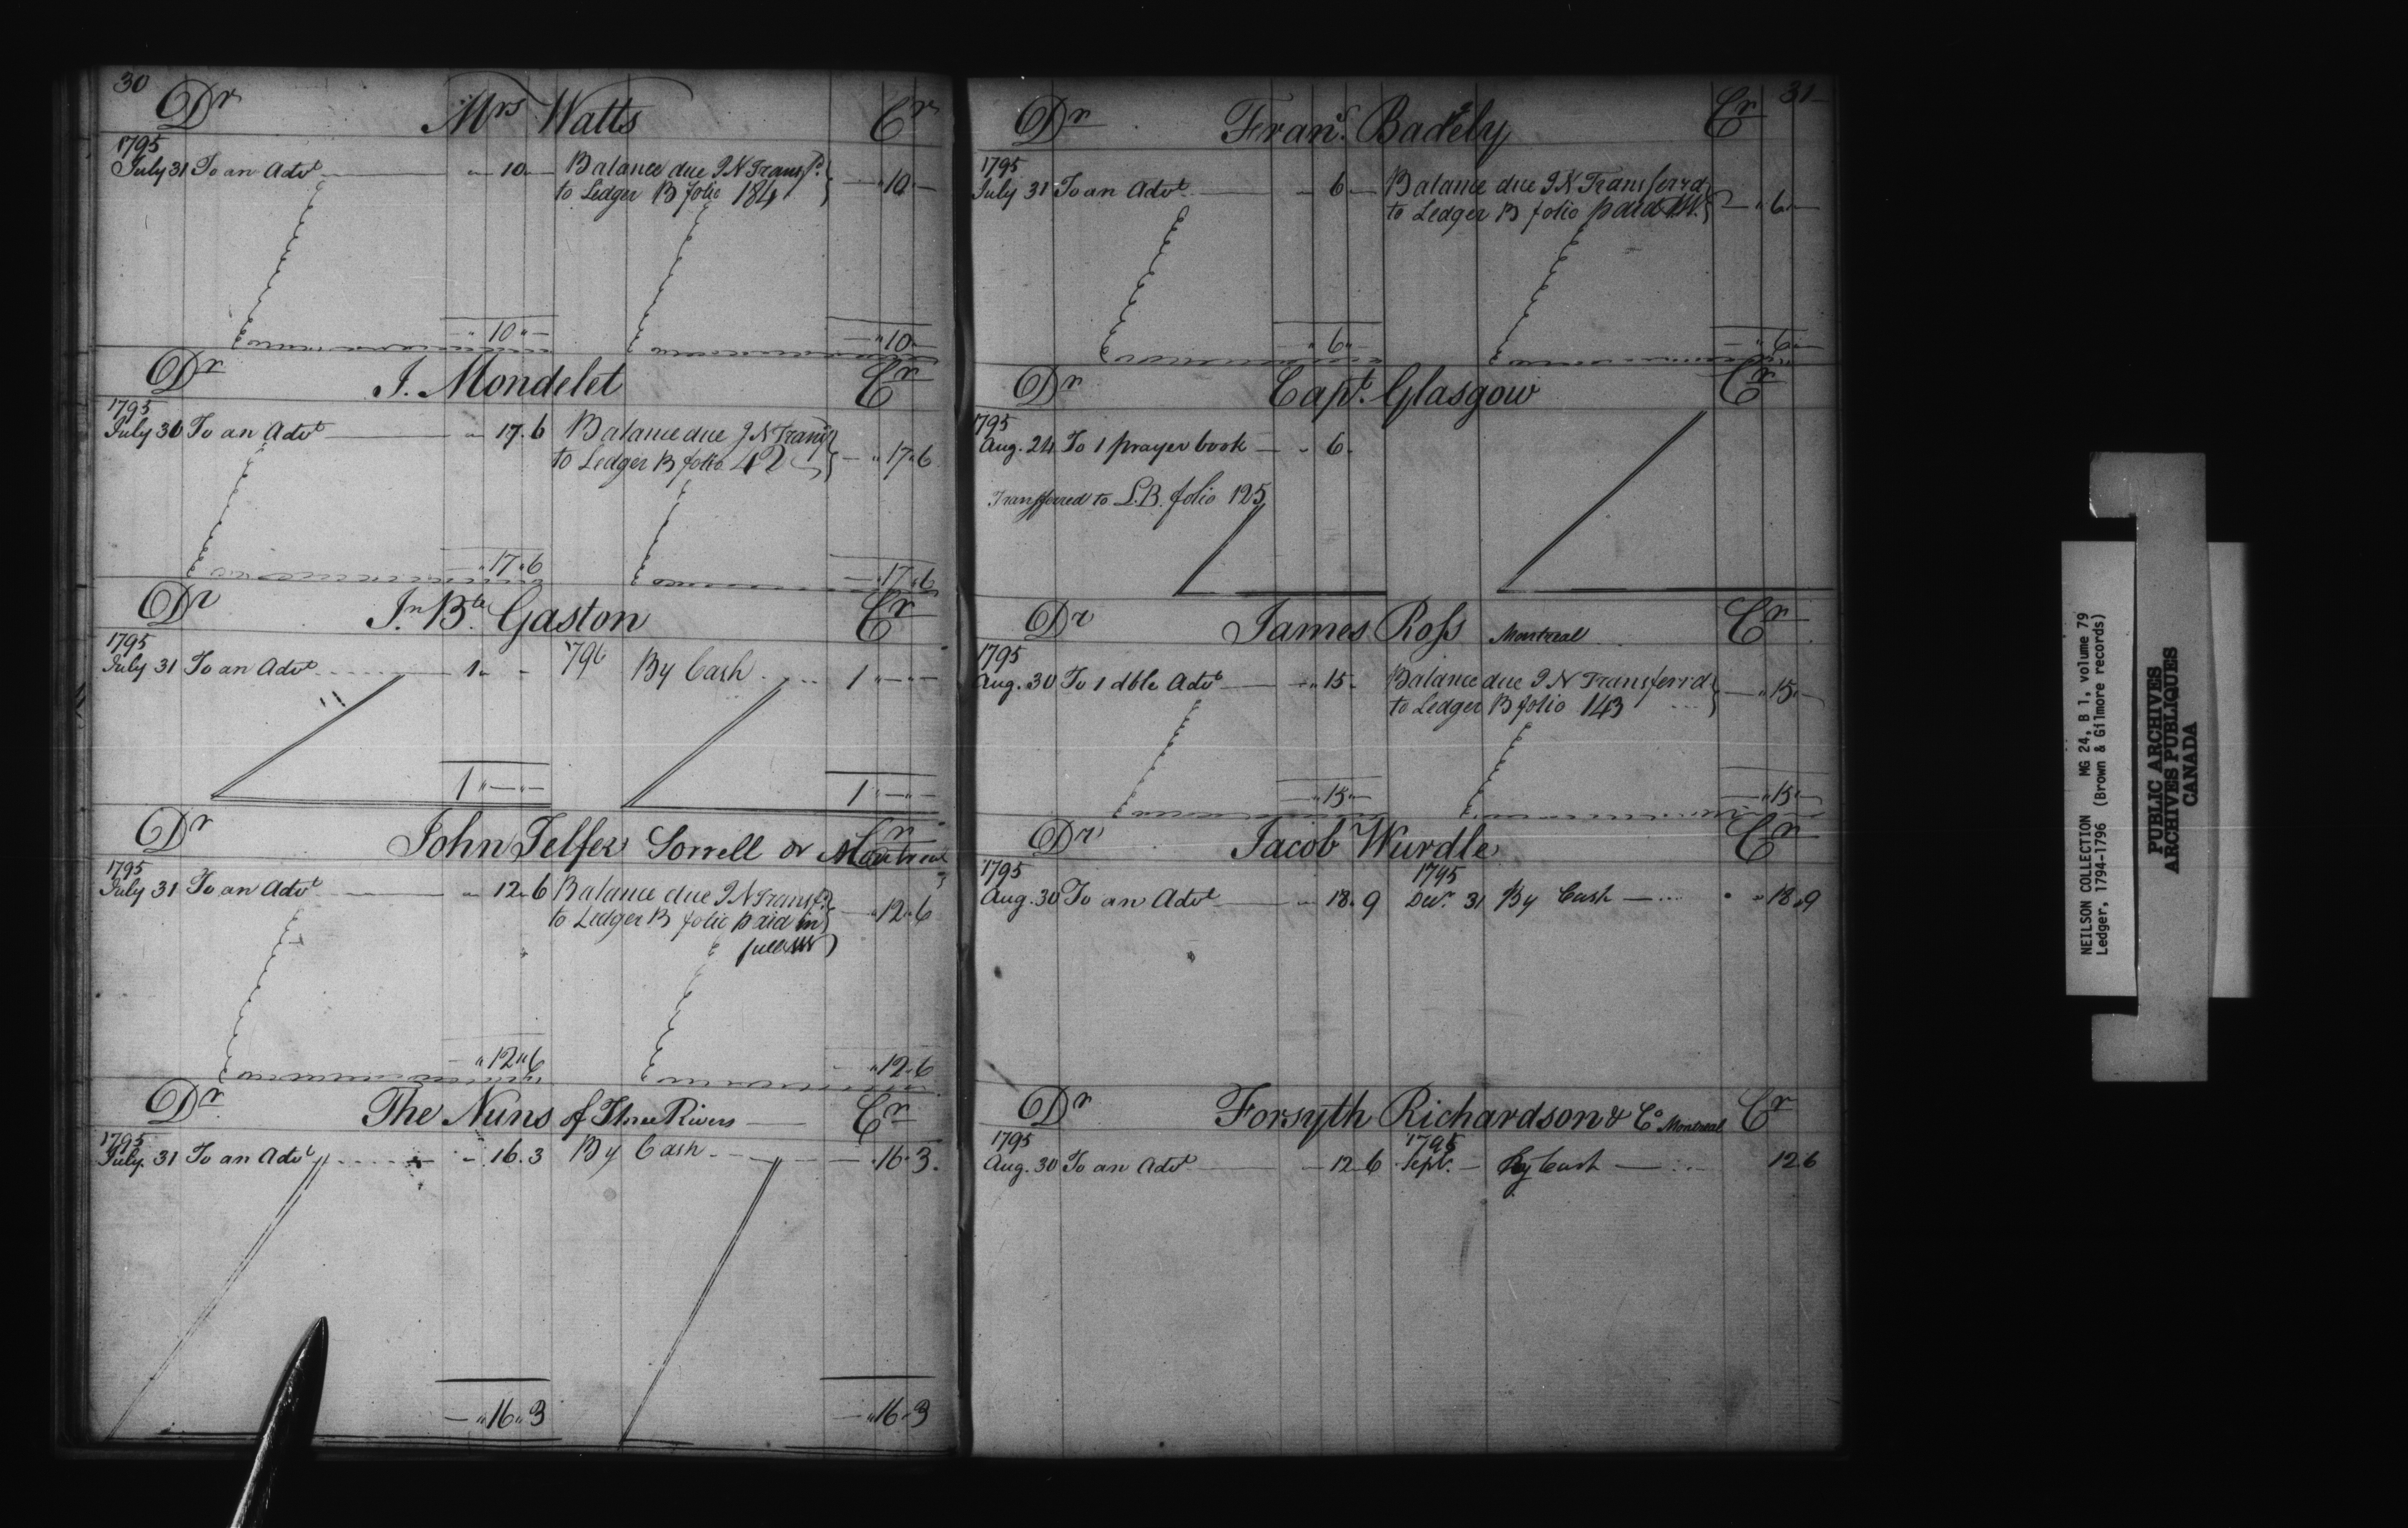 30
Dr Mrs Watts Cr
1795
July 31 To an Advt — " 10 — Balance due J N Transfd
to Ledger B folio 184 — " 10 —
— " 10 " — — " 10 —
Dr J. Mondelet Cr
1795
July 30 To an Advt — " 17 . 6 Balance due J N Transfd
to Ledger B folio 42 — " 17 " 6
— " 17 " 6 — " 17 " 6
Dr Jn Bte Gaston Cr
1795
July 31 To an Advt 1 " - 796 By Cash 1 " — " —
1 " — " — 1 " — " —
Dr John Telfer Sorrell or Montreal Cr
1795
July 31 To an Advt — " 12 . 6 Balance due J N Transfd
to Ledger B folio paid in — " 12 " 6
full
— " 12 " 6 " 12 . 6
Dr The Nuns of Three Rivers — Cr
1795
July 31 To an Advt - . 16 . 3 By Cash — . 16 . 3 .
— " 16 " 3 — " 16 " 3
31
Dr Frans. Badely Cr
1795
July 31 To an Advt — " 6 — Balance due J N Transferrd
to Ledger B folio paid — " 6 " —
— " 6 " — — " 6 " —
Dr Capt. Glasgow Cr
1795
Aug. 24 To 1 prayer book — " 6 .
Transferred to L.B. folio 125
Dr James Ross Montreal Cr
1795
Aug. 30 To 1 dble Advt — " 15 . Balance due J N Transferrd
to Ledger B folio 143 — " 15 " —
— " 15 " — — " 15 " —
Dr Jacob Wurdle Cr
1795 1795
Aug. 30 To an Advt — " 18 . 9 Decr. 31 By Cash — " " 18 " 9
Dr Forsyth Richardson & Co Montreal Cr
1795 1795
Aug. 30 To an Advt — 12 . 6 Septr. — By Cash — 12 6
NEILSON COLLECTION MG 24, B 1, volume 79
Ledger, 1794-1796 (Brown & Gilmore records)
PUBLIC ARCHIVES
ARCHIVES PUBLIQUES
CANADA